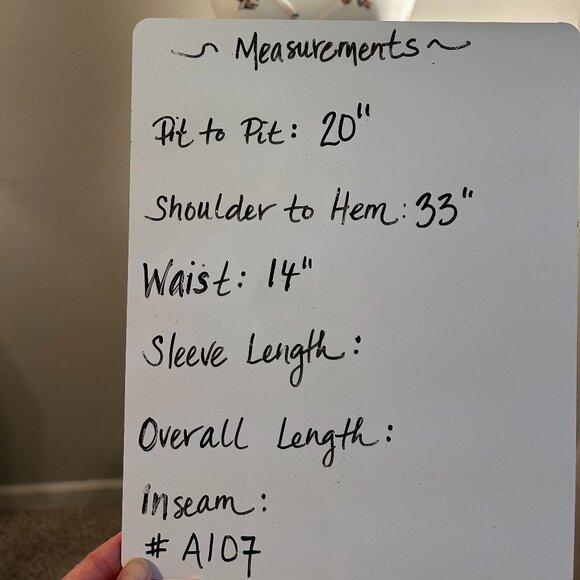 ~ Measurements ~
Pit to Pit: 20"
Shoulder to Hem: 33"
Waist: 14"
Sleeve Length:
Overall Length:
Inseam:
# A107